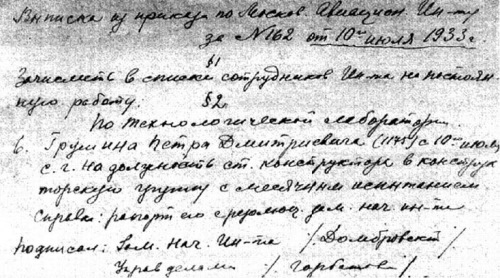 Выписка из приказа по Москов. Авиацион. Ин-ту
за №162 от 10го июля 1933 г.
§1
Зачислить в списки сотрудников Ин-та на постоян-
ную работу:
§2.
По технологической лаборатори..
6. Грушина Петра Дмитриевича (1175) с 10го июля
с.г. на должность ст. конструктора в конструк
торскую группу с месячным испытанием
Справка: рапорт его с резолюц. зам. нач. ин-та
Подписал: Зам. Нач. Ин-та /. Домбровск
Управделами /. Горбатов